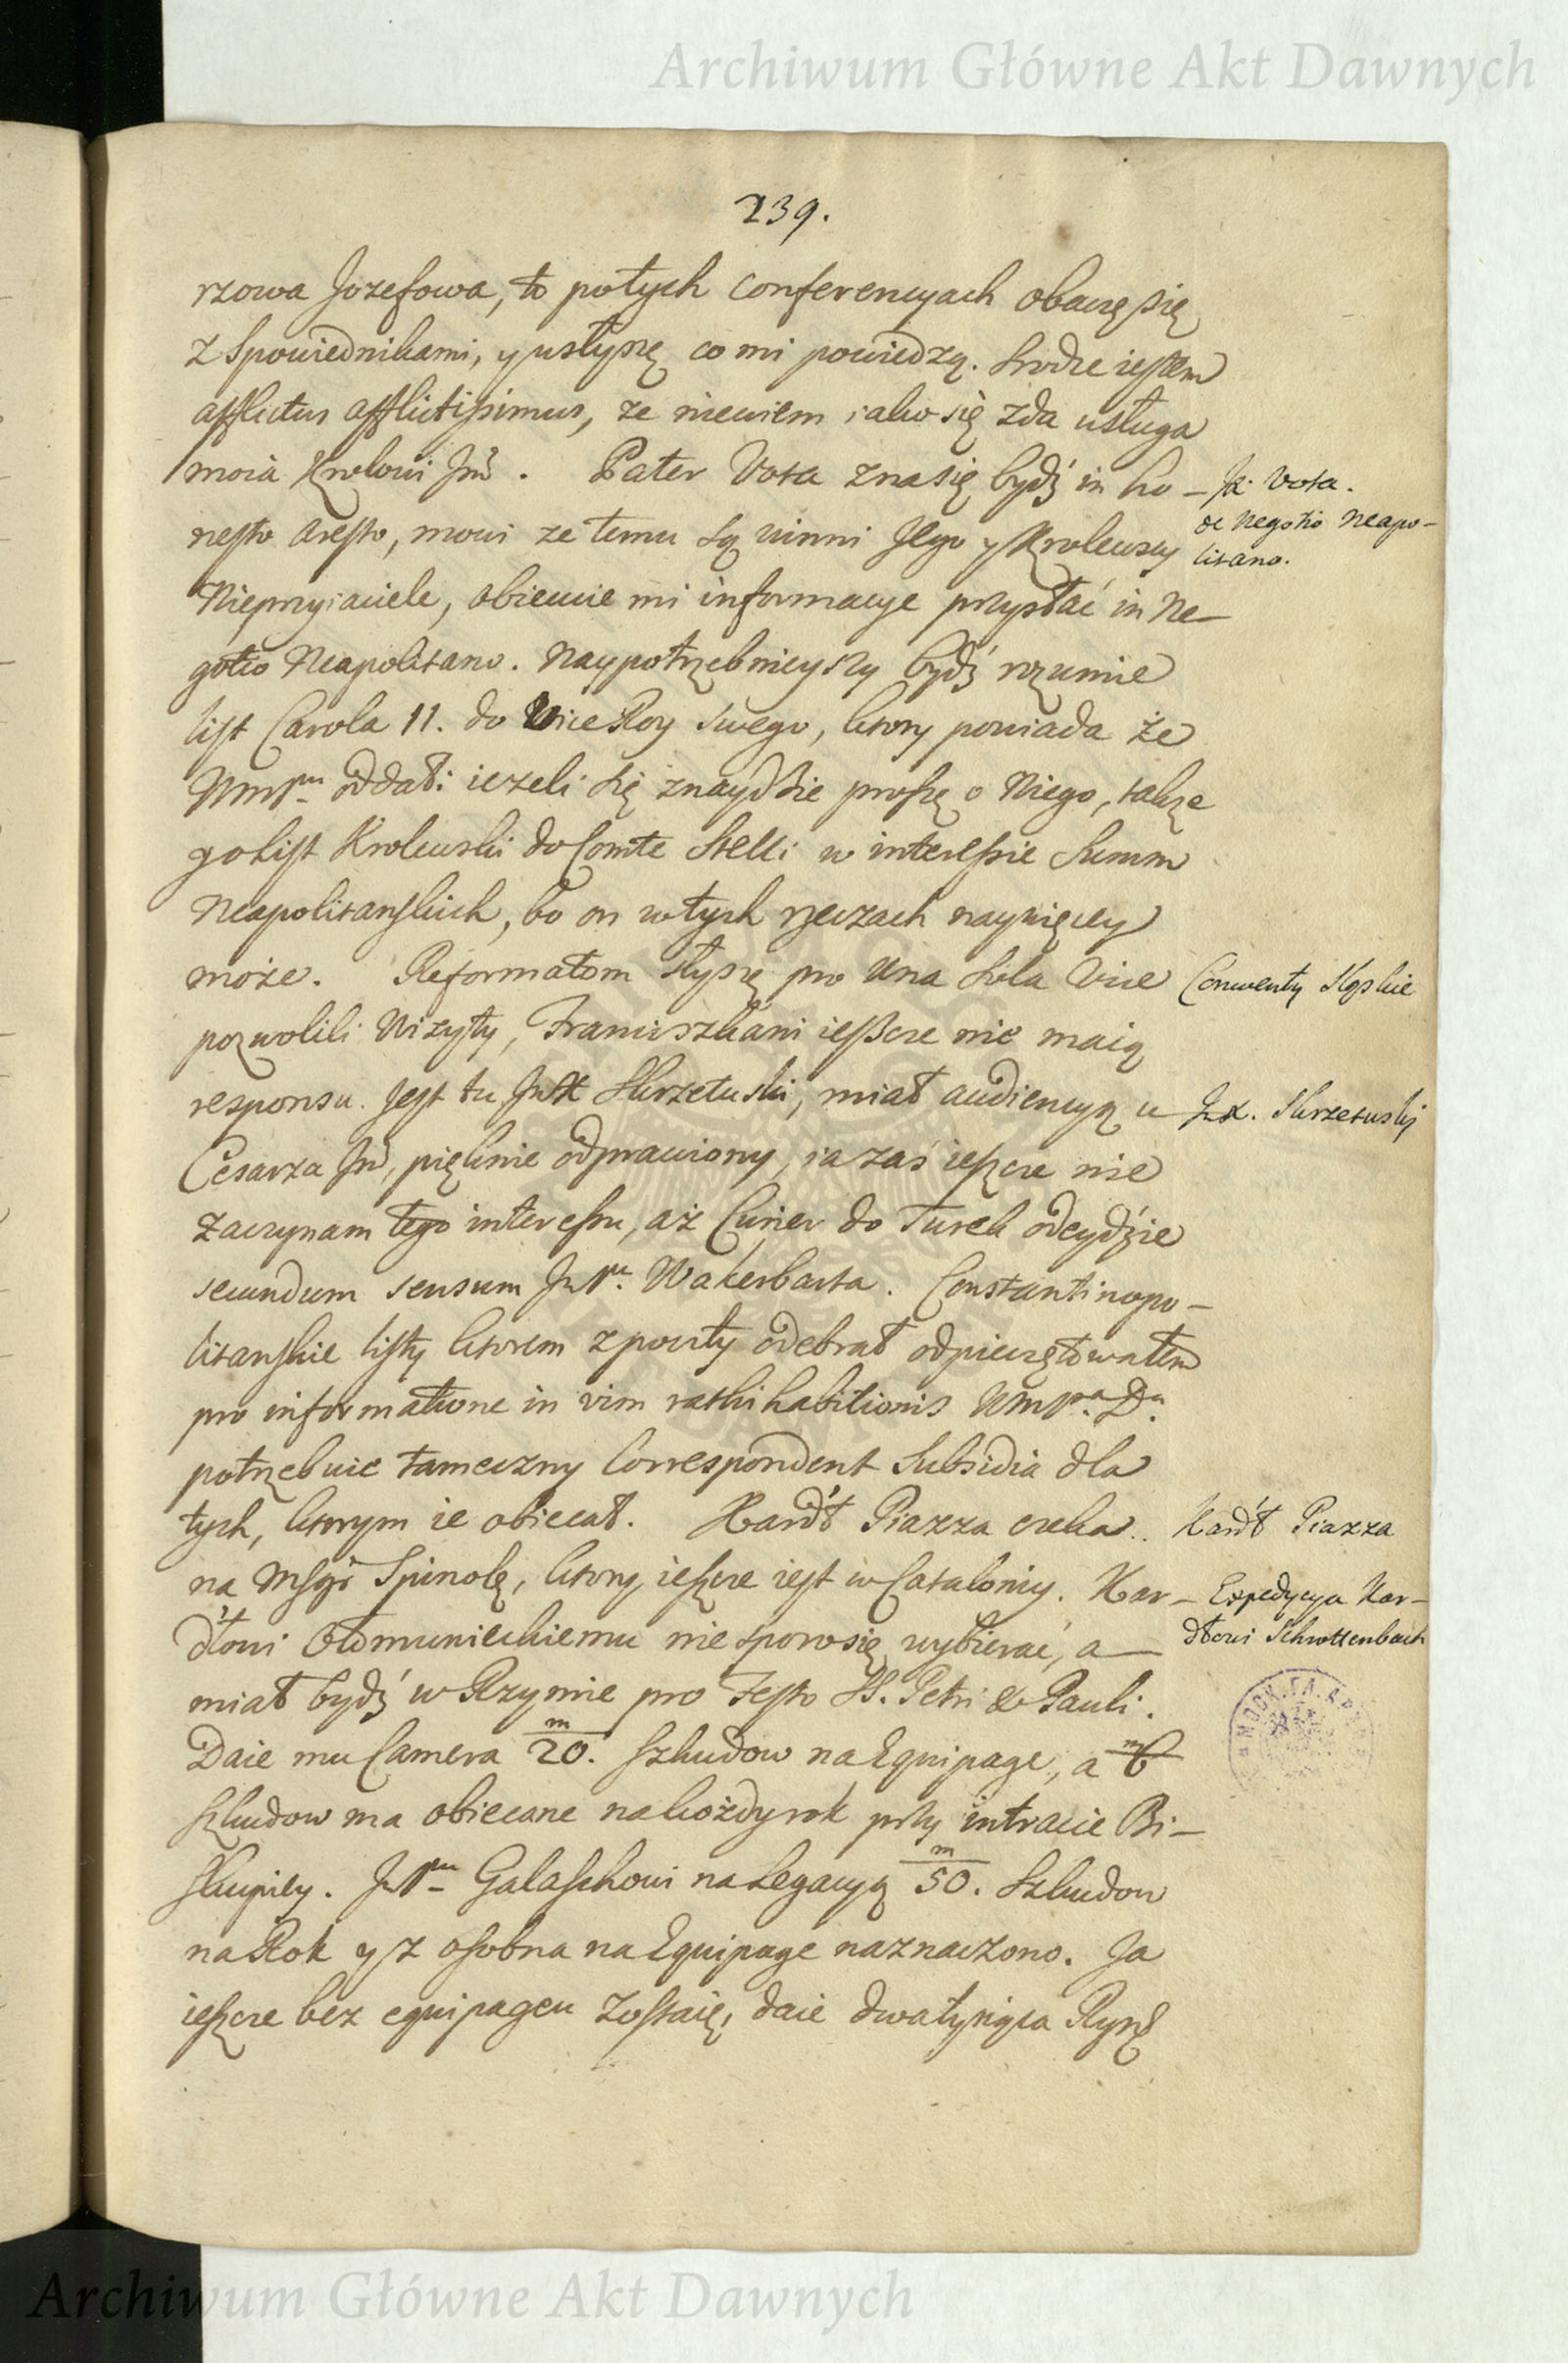 Archiwum Główne Akt Dawnych
239.
rzowa Jozefowa, to potych conferencyach obaczę się
z Spowiednikami, y usłyszę co mi powiedzą. Srodze iestem
afflictus afflictissimus, ze niewiem iako się zda usługa
moia Krolowi Jmć. Pater Vota zna się bydź in ho-
nesto aresto, mowi ze temu są winni Jego y Krolewscy
Nieprzyiaciele, obiecuie mi informacye przysłać in Ne-
gotio Neapolitano. Naypotrzebnieyszy bydź rozumie
list Carola II. do Vice Roy swego, ktory powiada że
WmPnu oddał: iezeli się znaydzie proszę o Niego, także
go List Krolewski do Comte Stelli w interessie Summ
Neapolitanskich, bo on w tych rzeczach naywięcey
może. Reformatom słyszę pro una sola Vice
pozwolili Wizyty, Franciszkani ieszcze nie maią
responsu. Jest tu JmX Skrzetuski, miał audiencyą u
Cesarza Jmć, pięknie odprawiony, ia zaś ieszcze nie
zaczynam tego interessu, aż Curier do Turek odeydzie
secundum sensum JmPa. Wakerbarta. Constantinopo-
litanskie listy ktorem z poczty odebrał odpieczętowałem
pro informatione in vim rathihabitionis WmPa. Da.
potrzebuie tameczny Correspondent Subsidia dla
tych, ktorym ie obiecał. Kardł Piazza czeka
na Msgr Spinolę, ktory ieszcze iest w Cataloniy. Kar-
dłowi Ołomunieckiemu nie sporo się wybierać, a
miał bydź w Rzymie pro Festo SS. Petri & Pauli.
Daie mu Camera m/20. Szkudow na Equipage, a m/6
szkudow ma obiecane na kożdy rok przy intracie Bi-
skupiey. JmPnu Galaschowi na Legacyą m/50. Szkudow
na Rok y z osobna na Equipage naznaczono. Ja
ieszcze bez equipageu zostaię, daie dwa tysiąca Ryns
Vota.
de Negotio Neapo-
litano.
Conwenty Sląskie
JmX. Skrzetuski
Kardł Piazza
Expedycya Kar-
dłowi Schrottenbach
Archiwum Główne Akt Dawnych